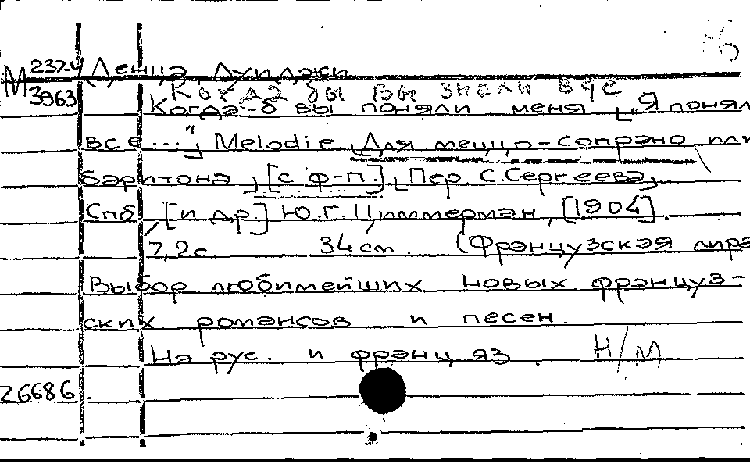 М 237-4 Денца, Луиджи
3963 Когда бы вы знали все
Когда-б вы поняли меня [„Я понял
все...."] Melodie. Для меццо-сопрано или
баритона, [с ф-п.], [Пер С. Сергеева,
Спб, [и др.] Ю. Г. Циммерман, [1904].
7, 2 с. 34 cm. (Французская лира
Выбор любимейших новых француз-
ских романсов и песен
На рус. и франц. яз. Н/М
26686